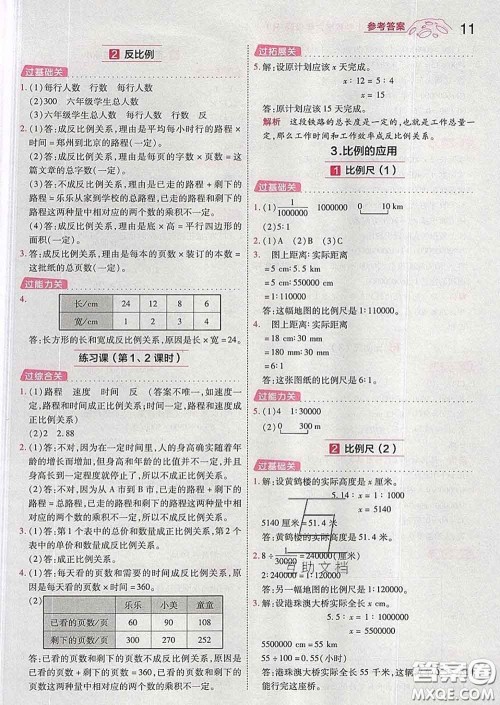 参考答案
11
2 反比例
过基础关
1. (1)每行人数 行数 每行人数
(2)300 六年级学生总人数
(3)六年级学生总人数 每行人数 行数 反
2. (1)答:成反比例关系,理由是平均每小时行的路程×
时间=郑州到北京的路程(一定)。
(2)答:成反比例关系,理由是每页的字数×页数=这
篇文章的总字数(一定)。
(3)答:不成反比例关系,理由是已走的路程+剩下的
路程=乐乐从家到学校的总路程,已走的路程和剩下
的路程这两种量中相对应的两个数的乘积不一定。
(4)答:成反比例关系,理由是底×高=平行四边形的
面积(一定)。
3. 答:成反比例关系,理由是每本的页数×装订的本数=
这批纸的总页数(一定)。
过能力关
4.
长/cm 24 12 8 6
宽/cm 1 2 3 4
答:长方形的长和宽成反比例关系,原因是长×宽=24。
练习课(第1、2课时)
过综合关
1. (1)路程 速度 时间 反 (答案不唯一,如速度一定,
路程和时间成正比例关系;时间一定,路程和速度成正
比例关系)
(2)2 2.88
2. (1)答:不对,因为在一定时间里,人的身高确实随着年
龄的增长而增长,但是身高与年龄的比值不一定,并且
身高长到一定程度就停止了,所以不成正比例关系。
(2)答:不对,因为从A市到B市,已走的路程+剩下的
路程=总路程,已走的路程和剩下的路程这两种量中相
对应的两个数的乘积不一定,所以不成反比例关系。
3. (1)答:第1个表中的总价和数量成正比例关系,第2个
表中的单价和数量成反比例关系。
(2)答:成正比例关系。
4. (1)答:每天看的页数和需要的时间成反比例关系,原
因是每天看的页数×需要的时间=360。
(2)
乐乐 小美 童童
已看的页数/页 60 90 108
剩下的页数/页 300 270 252
答:已看的页数和剩下的页数不成反比例关系,原因是
已看的页数+剩下的页数=360,已看的页数和剩下的
页数这两种量中相对应的两个数的乘积不一定。
过拓展关
5. 解:设原计划应该x天完成。
x∶12=5∶4
x=15
答:原计划应该15天完成。
解析 这段铁路的总长度是一定的,也就是工作总量一
定,那么工作时间和工作效率成反比例关系。
3.比例的应用
1 比例尺(1)
过基础关
1. (1)1/1000000 0 10 km
(2)5∶1
2. (1)A (2)B (3)C
3. 图上距离∶实际距离
=5 cm∶5.5 km
=5 cm∶550000 cm
=1∶110000
答:这幅地图的比例尺是1∶110000。
4. 图上距离∶实际距离
=18 cm∶30 mm
=180 mm∶30 mm
=6∶1
答:这张图纸的比例尺是6∶1。
过能力关
5. (1)4 1∶30000
(2)4 1∶80000
2 比例尺(2)
过基础关
1. 解:设黄鹤楼的实际高度是x厘米。
5.14∶x=1∶1000
x=5140
5140厘米=51.4米
答:黄鹤楼的实际高度是51.4米。
2. 8÷1/30000=240000(厘米)
240000×1/120000=2(厘米)
答:另一幅地图的比例尺是
3. 解:设港珠澳大桥实际全长x厘米。
x=5500000
5500000厘米=55千米
55÷100=0.55(小时)
答:港珠澳大桥实际全长55千米,
能行完这座桥。
互助文档
答案圈
MXQE.COM